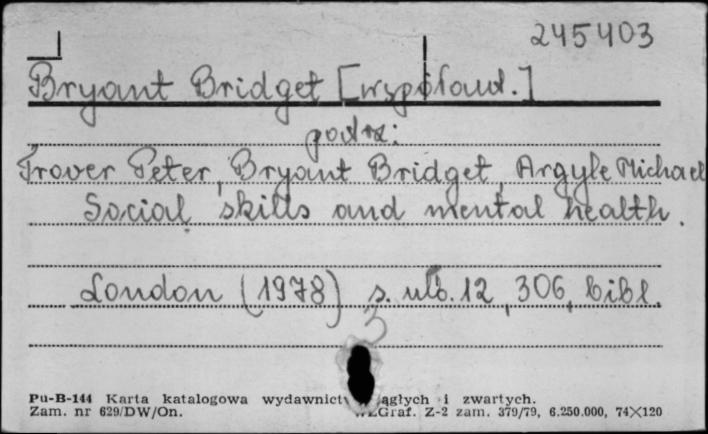 245403
Bryant Bridget [współaut.]
podra:
Trover Peter, Bryant Bridget, Argyle Michael
Social skills and mental health.
London (1978) s. ulb. 12, 306, bibl.
3
Pu-B-144 Karta katalogowa wydawnict ągłych i zwartych.
Zam. nr 629/DW/On. WZGraf. Z-2 zam. 379/79, 6.250.000, 74×120